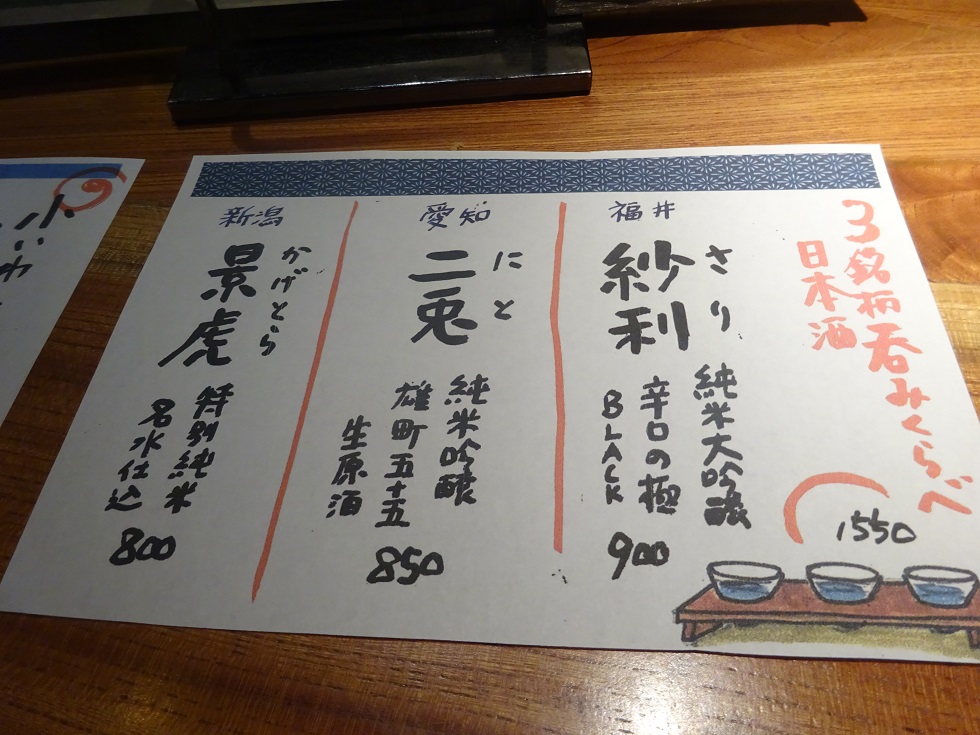 3銘柄呑みくらべ
日本酒
1550
福井
さり
紗利
純米大吟醸
辛口の極
BLACK
900
愛知
にと
二兎
純米吟醸
雄町五十五
生原酒
850
新潟
かげとら
景虎
特別純米
名水仕込
800